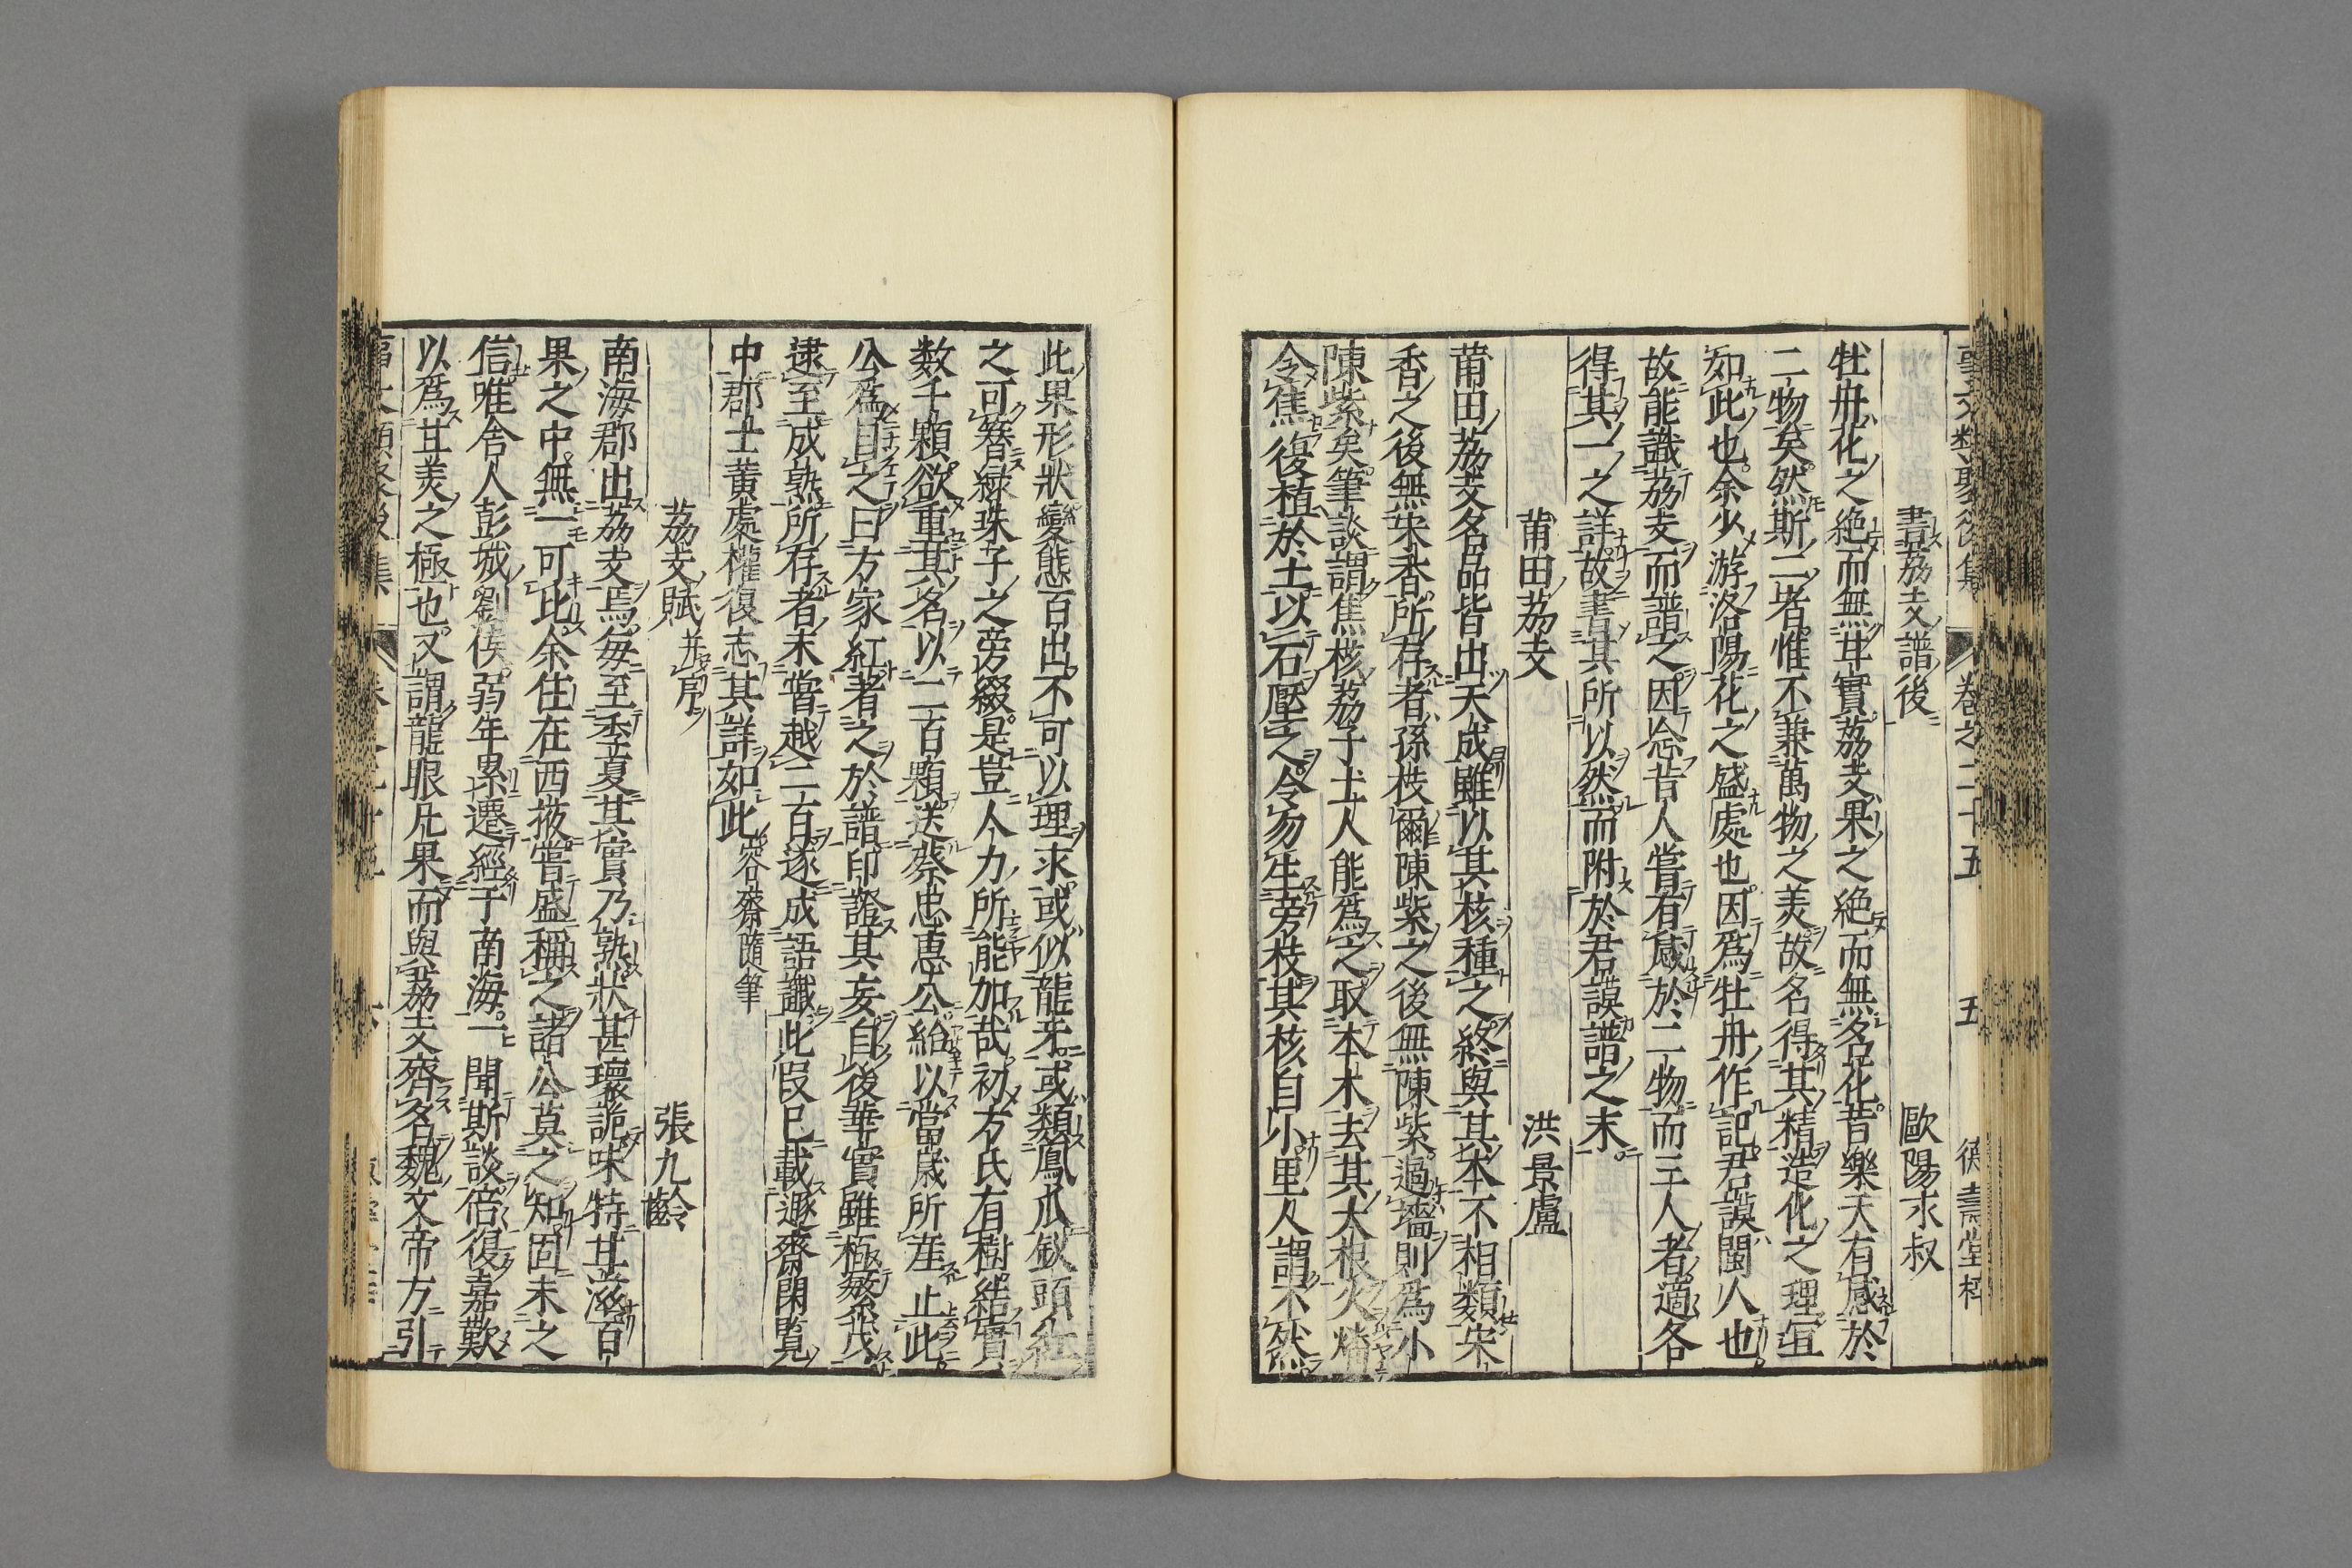 書茘支譜後 歐陽永叔
牡丹花之絶而無甘實茘支果之絶而無名花昔樂天有感於
二物矣然斯二者惟不兼萬物之美故名得其精造化之理宜
如此也余少游洛陽花之盛處也因爲牡丹作記君謨閩人也
故能識茘支而譜之因念昔人嘗有感於二物而三人者適各
得其一之詳故書其所以然而附於君謨譜之末
莆田茘支 洪景盧
莆田茘支名品皆出天成雖以其核種之終與其本不相類宋
香之後無宋香所存者孫枝爾陳紫之後無陳紫過墻則爲小
陳紫矣筆談謂焦核茘子土人能爲之取本木去其大根火燔
令焦復植於土以石壓之令勿生旁枝其核自小里人謂不然
此果形狀變態百出不可以理求或似龍牙或類鳳爪釵頭紅
之可簪緑珠子之旁綴是豈人力所能加哉初方氏有樹結實
数千顆欲重其名以二百顆送蔡忠惠公紿以當歳所産止此
公爲目之曰方家紅著之於譜印證其妄自後華實雖極繁茂
逮至成熟所存者未嘗越二百遂成語讖此段已載遯齋閑覧
中郡士黄處權復志其詳如此 容齋隨筆
茘支賦并序 張九齡
南海郡出茘支焉毎至季夏其實乃熟狀甚瓌詭味特甘滋百
果之中無一可比余往在西掖嘗盛稱之諸公莫之知固未之
信唯舍人彭城劉侯弱年累遷經于南海一聞斯談倍復嘉歎
以爲甘美之極也又謂龍眼凡果而與茘支齊名魏文帝方引